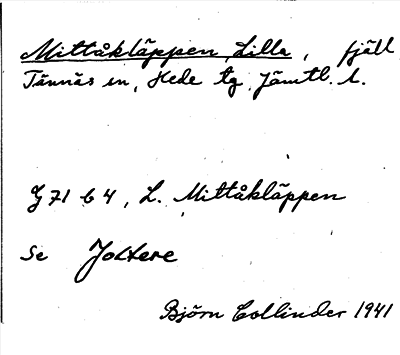 Mittåkläppen, Lilla, fjäll
Tännäs sn, Hede tg, Jämtl. l.
G 71 b 4, L. Mittåkläppen
Se Joltere
Björn Collinder 1941